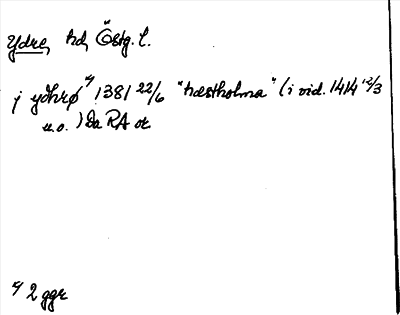 Ydre, hd, Östg. l.
j ydhrø ⁴⁾ 1381 22/6 "hæstholma" (i vid. 1414 12/3
u.o.) Da RA or.
⁴⁾ 2 ggr